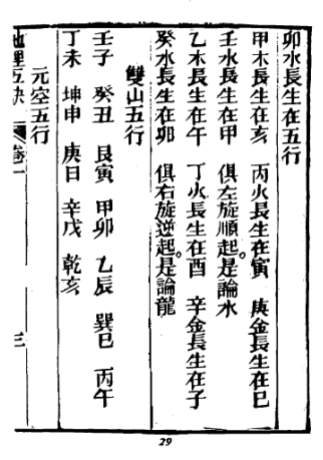 卯水長生在五行
甲木長生在亥 丙火長生在寅 庚金長生在巳
壬水長生在甲 俱左旋順起。是論水
乙木長生在午 丁火長生在酉 辛金長生在子
癸水長生在卯 俱右旋逆起。是論龍
雙山五行
壬子 癸丑 艮寅 甲卯 乙辰 巽巳 丙午
丁未 坤申 庚日 辛戊 乾亥
元空五行
地理五訣 卷一 三
29